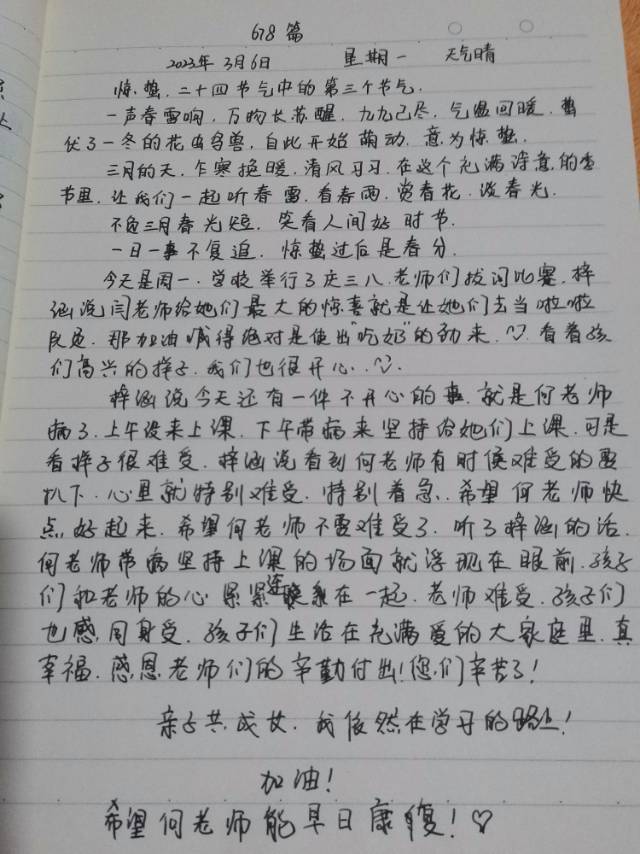 678篇
2023年3月6日 星期一 天气晴
惊蛰，二十四节气中的第三个节气.
一声春雷响，万物长苏醒，九九已尽，气温回暖，蛰
伏了一冬的花虫鸟兽，自此开始萌动，意为惊蛰.
三月的天，乍寒换暖，清风习习，在这个充满诗意的季
节里，让我们一起听春雷，看春雨，赏春花，沐春光.
不负三月春光短，笑看人间好时节.
一日一事不复追，惊蛰过后是春分.
今天是周一，学校举行了庆三八，老师们拔河比赛，梓
涵说闫老师给她们最大的惊喜就是让她们去当啦啦
队员，那加油喊得绝对是使出"吃奶"的劲来，看着孩
们高兴的样子，我们也很开心.
梓涵说今天还有一件不开心的事，就是何老师
病了，上午没来上课，下午带病来坚持给她们上课，可是
看样子很难受，梓涵说看到何老师有时候难受的要
趴下，心里就特别难受，特别着急，希望何老师快
点好起来，希望何老师不要难受了，听了梓涵的话，
何老师带病坚持上课的场面就浮现在眼前，孩子
们和老师的心紧紧连系在一起，老师难受，孩子们
也感同身受，孩子们生活在充满爱的大家庭里，真
幸福，感恩老师们的辛勤付出！您们辛苦了！
亲子共成长，我依然在学习的路上！
加油！
希望何老师能早日康复！♡